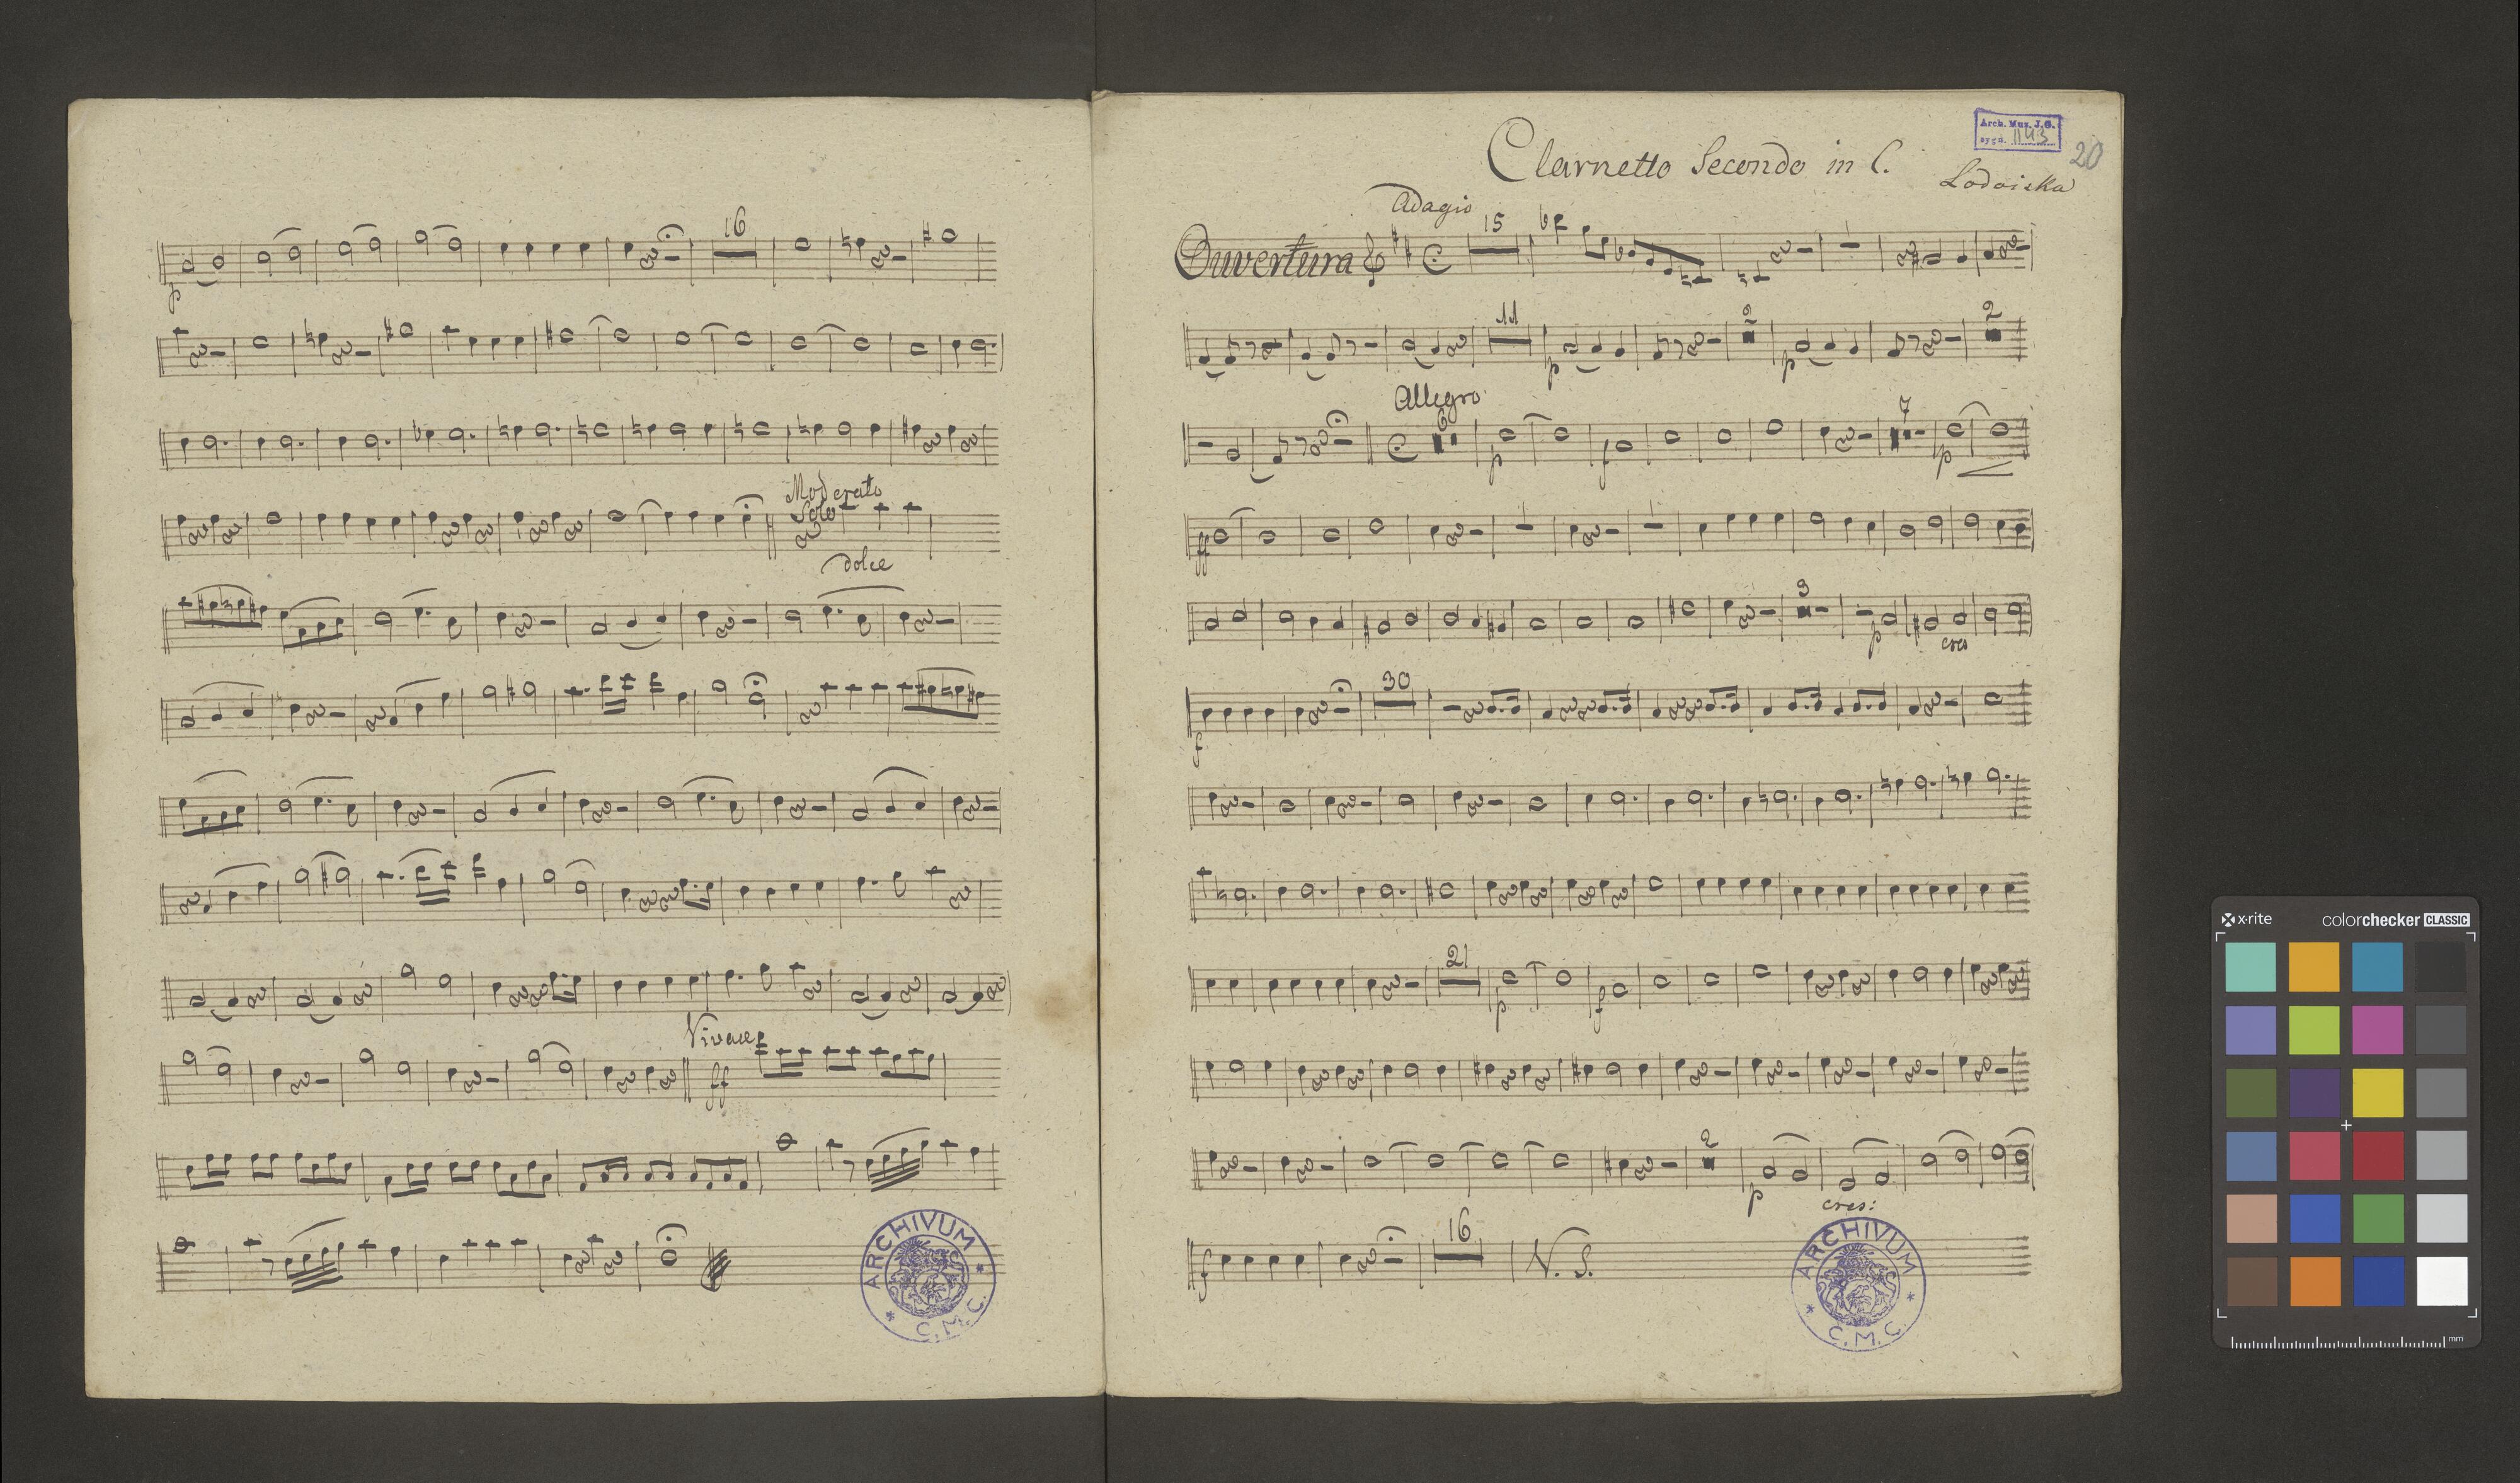 16
p
Moderato
Solo
dolce
Vivace
ff
ARCHIVUM
* C. M. C. *
Arch. Muz. J.G.
sygn. 1143
20
Clarnetto Secondo in C.
Lodoiska
Adagio
Ouvertura
15
11
2
2
p
p
Allegro
6
7
p
f
p
ff
3
p
cres
30
f
21
p
f
2
p
cres:
16
f
N. S.
ARCHIVUM
* C. M. C. *
x-rite
colorchecker CLASSIC
mm